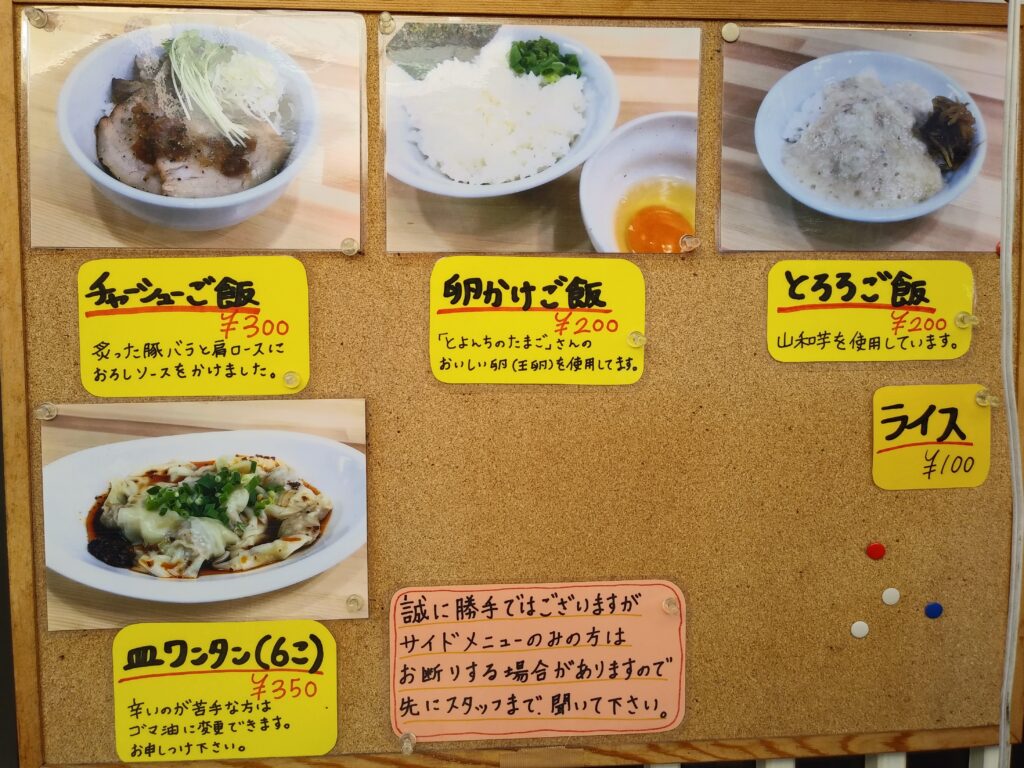 チャーシューご飯
¥300
炙った豚バラと肩ロースに
おろしソースをかけました。
卵かけご飯
¥200
「とよんちのたまご」さんの
おいしい卵(玉卵)を使用してます。
とろろご飯
¥200
山和芋を使用しています。
ライス
¥100
皿ワンタン(6こ)
¥350
辛いのが苦手な方は
ゴマ油に変更できます。
お申しつけ下さい。
誠に勝手ではございますが
サイドメニューのみの方は
お断りする場合がありますので
先にスタッフまで、聞いて下さい。